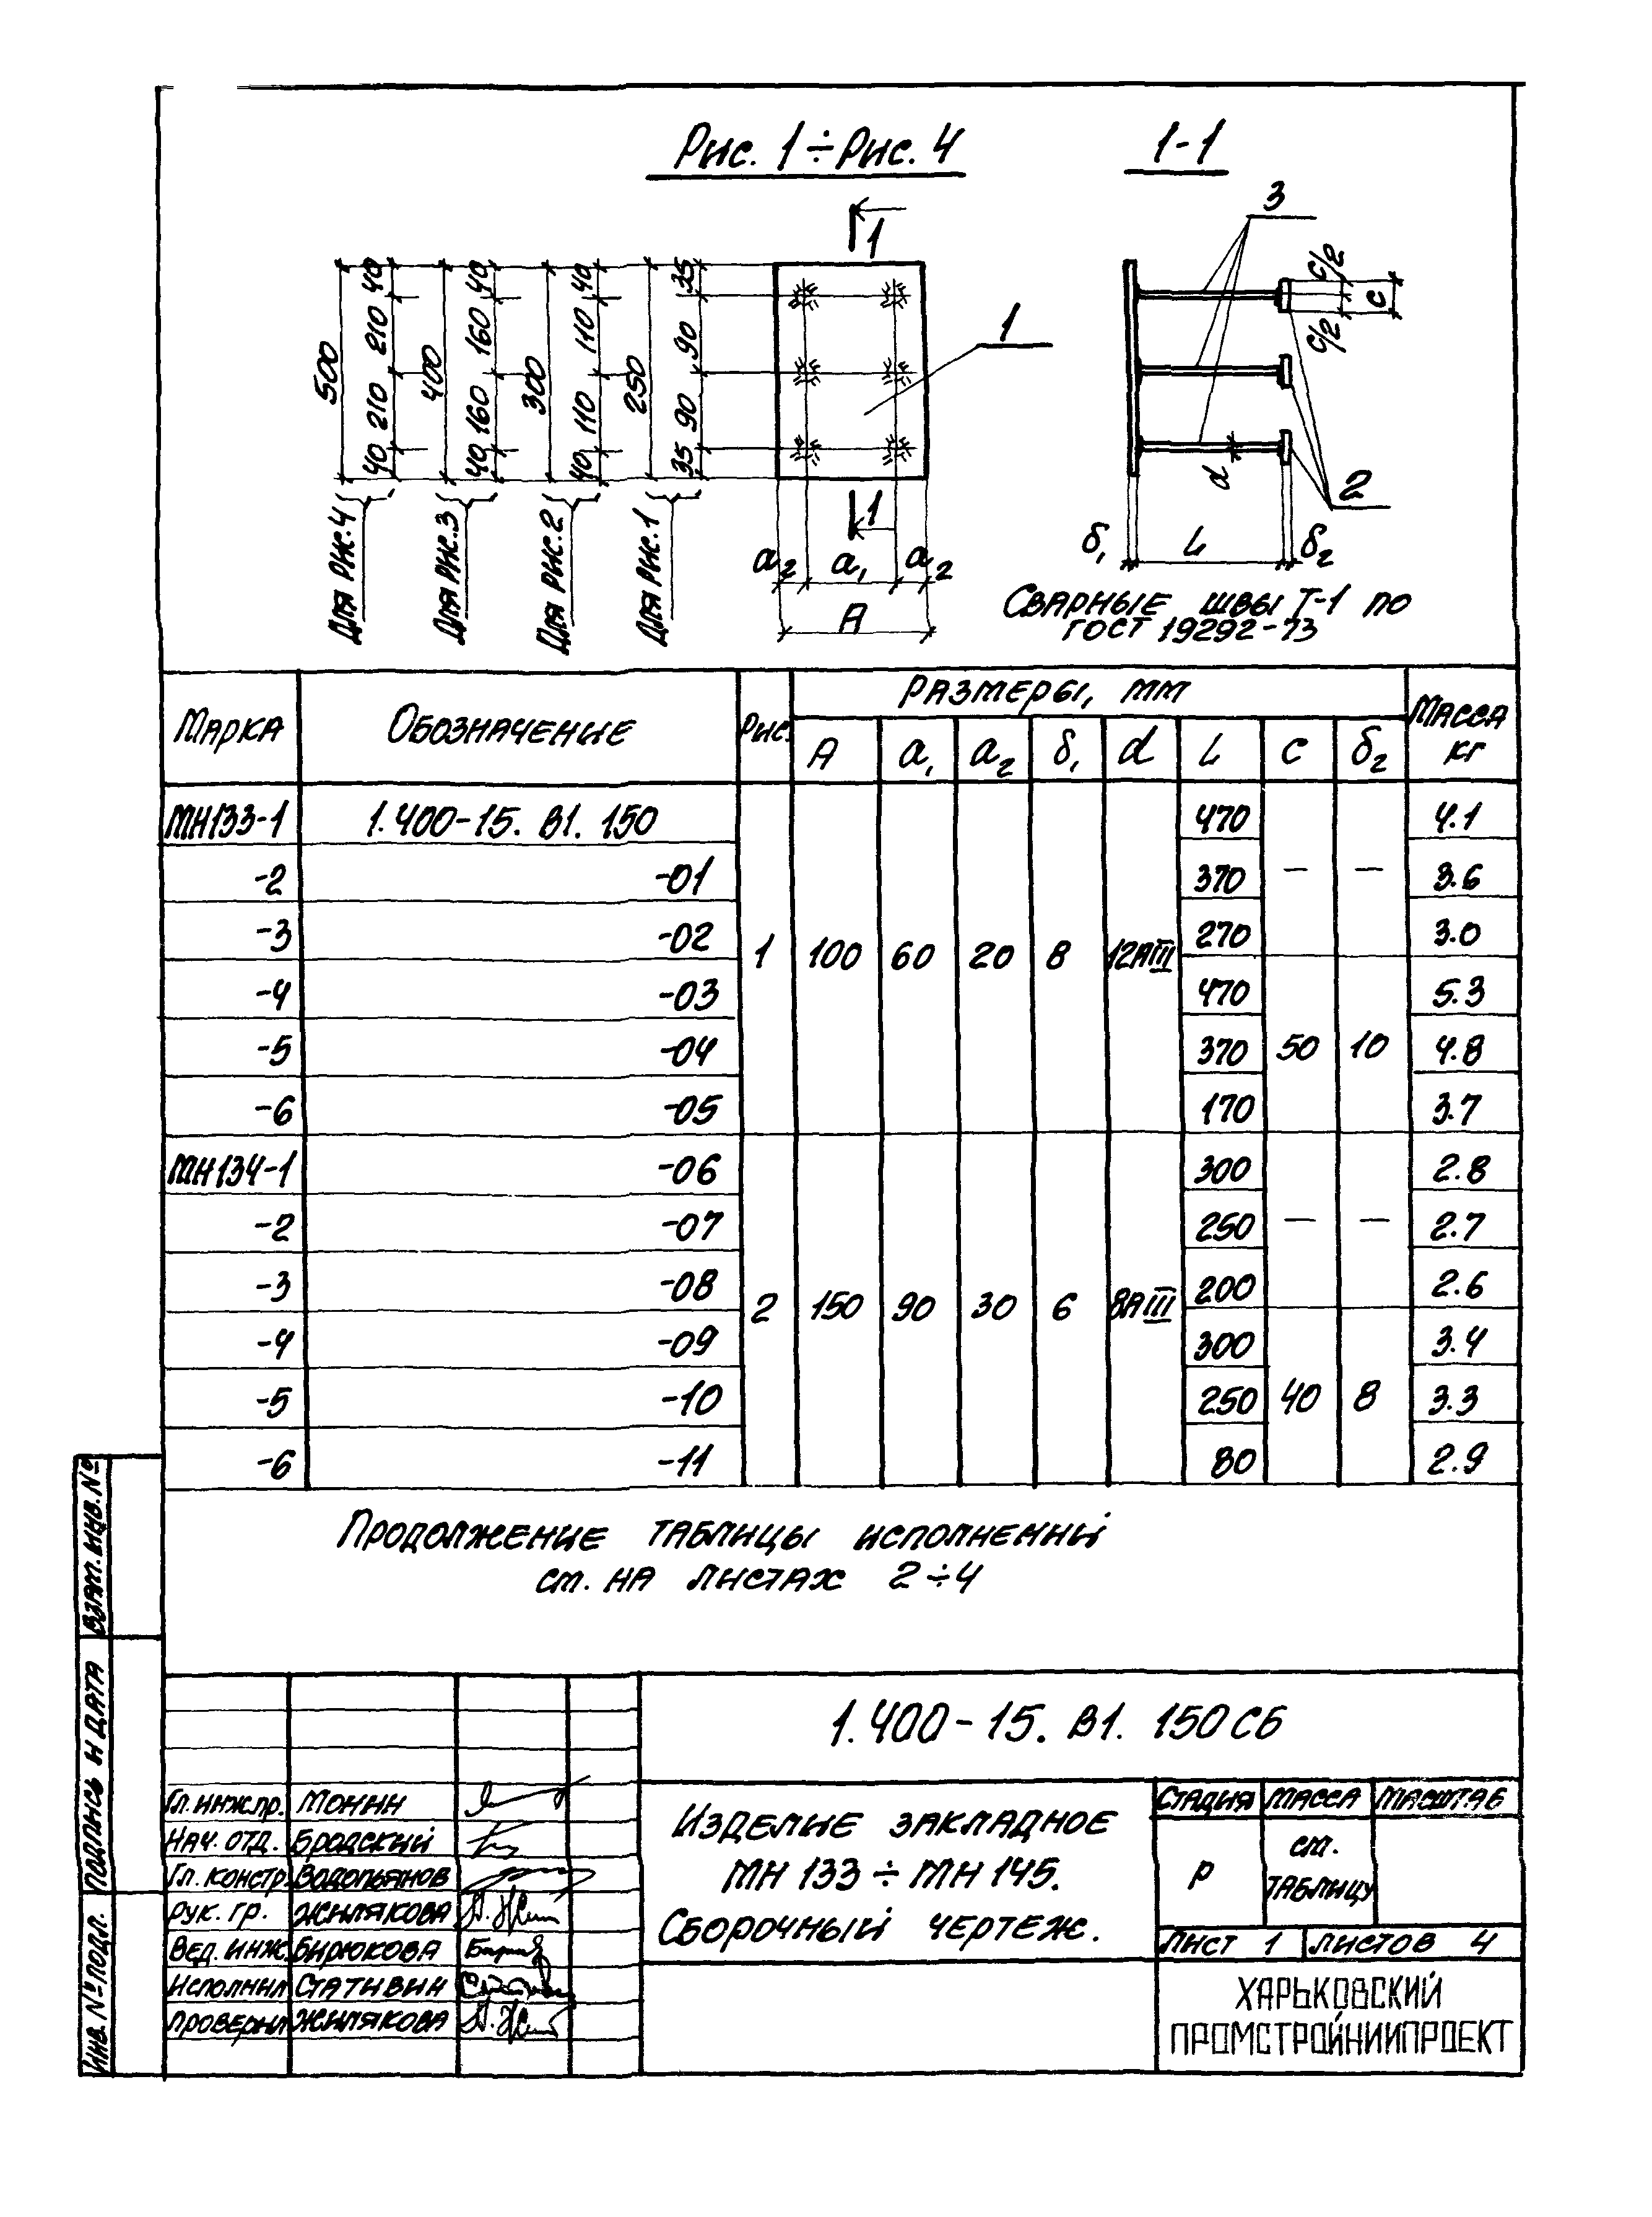 Рис. 1÷Рис. 4
1-1
3
1
1
1
2
500
40 210 210 40
400
40 160 160 40
300
40 110 110 40
250
35 90 90 35
Для рис.4
Для рис.3
Для рис.2
Для рис.1
a2 a1 a2
A
c/2
c/2
c
d
δ1 L δ2
Сварные швы Т-1 по
ГОСТ 19292-73
Марка Обозначение Рис. Размеры, мм Масса кг
A a1 a2 δ1 d L c δ2
МН133-1 1.400-15. В1. 150 470 4.1
-2 -01 370 — — 3.6
-3 -02 270 3.0
1 100 60 20 8 12АIII
-4 -03 470 5.3
-5 -04 370 50 10 4.8
-6 -05 170 3.7
МН134-1 -06 300 2.8
-2 -07 250 — — 2.7
-3 -08 200 2.6
2 150 90 30 6 8АIII
-4 -09 300 3.4
-5 -10 250 40 8 3.3
-6 -11 80 2.9
Продолжение таблицы исполнений
см. на листах 2÷4
Взам. инв. №
Подпись и дата
Инв. № подл.
1.400-15. В1. 150СБ
Гл. инж. пр. Монин
Нач. отд. Бродский
Гл. констр. Водопьянов
Рук. гр. Жилякова
Вед. инж. Бирюкова
Исполнил Стативин
Проверил Жилякова
Изделие закладное
МН 133 ÷ МН 145.
Сборочный чертеж.
Стадия Масса Масштаб
Р см. таблицу
Лист 1 Листов 4
ХАРЬКОВСКИЙ
ПРОМСТРОЙНИИПРОЕКТ